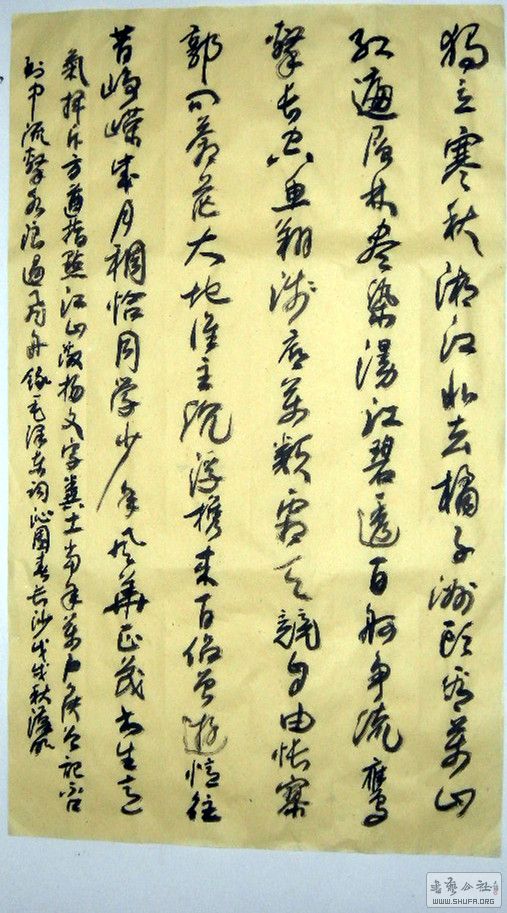 独立寒秋湘江北去橘子洲头看万山
红遍层林尽染漫江碧透百舸争流鹰
击长空鱼翔浅底万类霜天竞自由怅寥
廓问苍茫大地谁主沉浮携来百侣曾游忆往
昔峥嵘岁月稠恰同学少年风华正茂书生意
气挥斥方遒指点江山激扬文字粪土当年万户侯曾记否
到中流击水浪遏飞舟 录毛泽东词沁园春长沙戊戌秋
书法公社
WWW.SHUFA.ORG